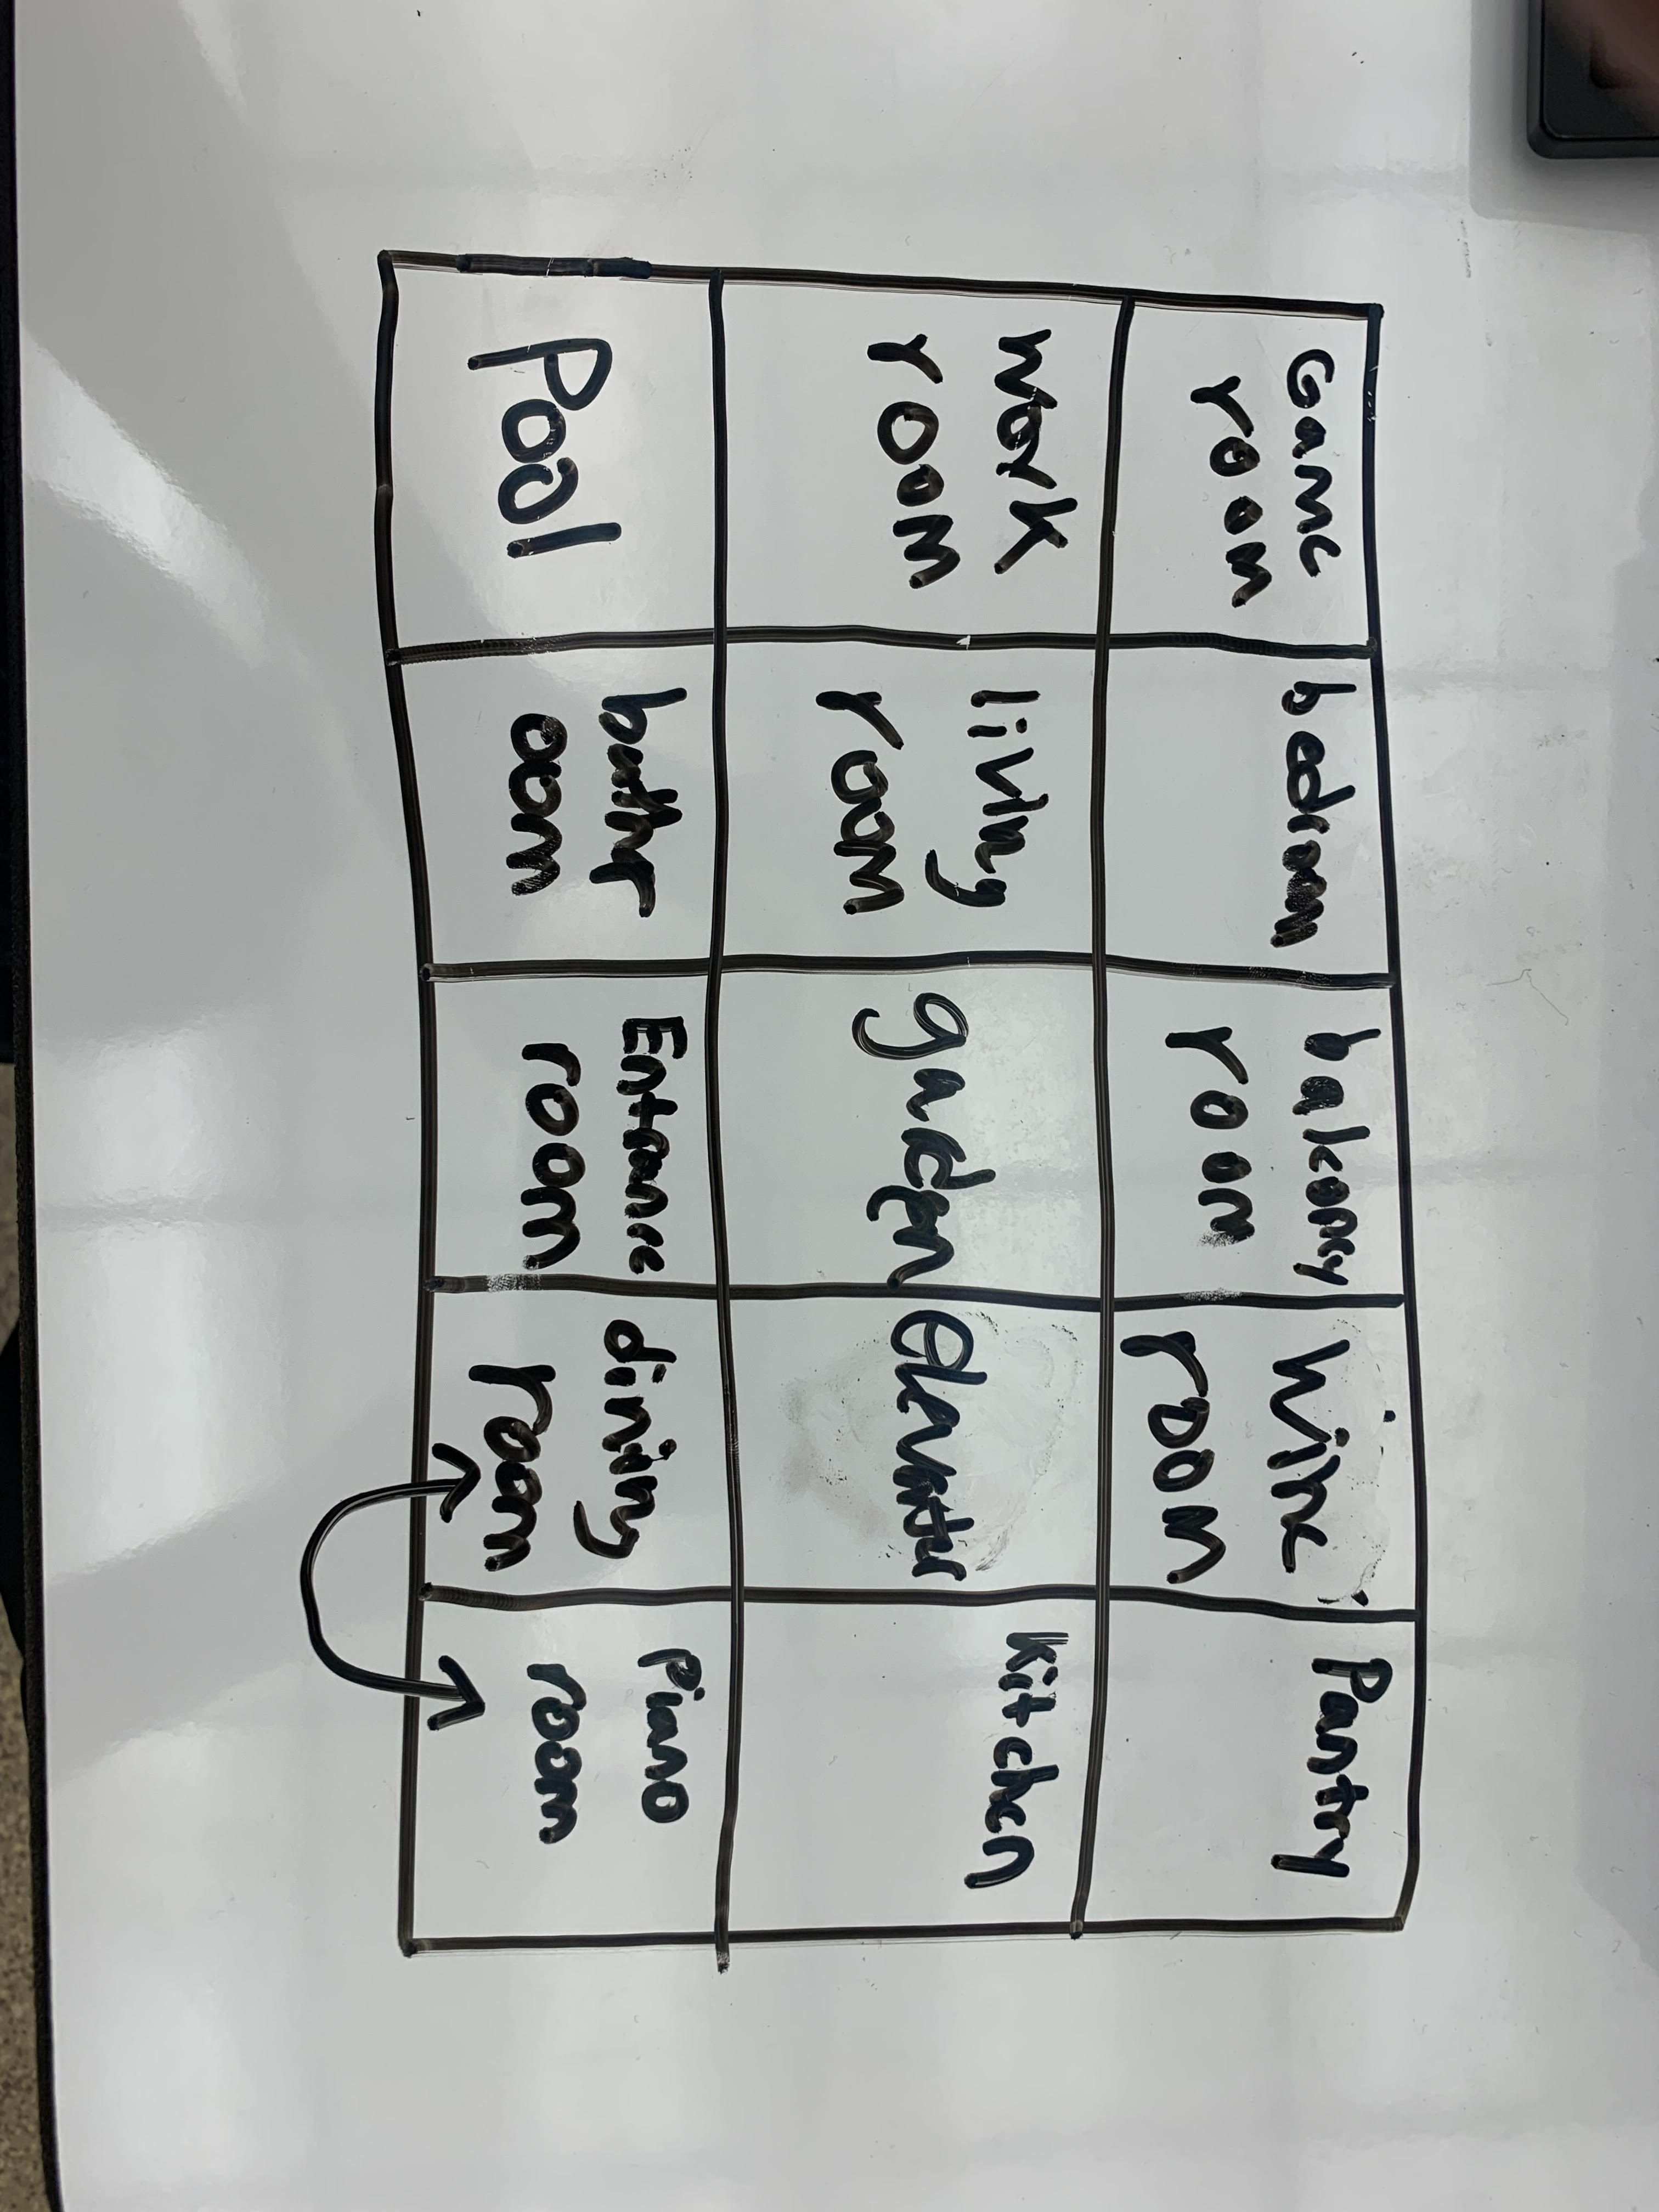 Game
room
bedroom
balcony
room
Wine
room
Pantry
Work
room
living
room
garden
elevator
Kitchen
Pool
bathr
oom
Entrance
room
dining
room
Piano
room